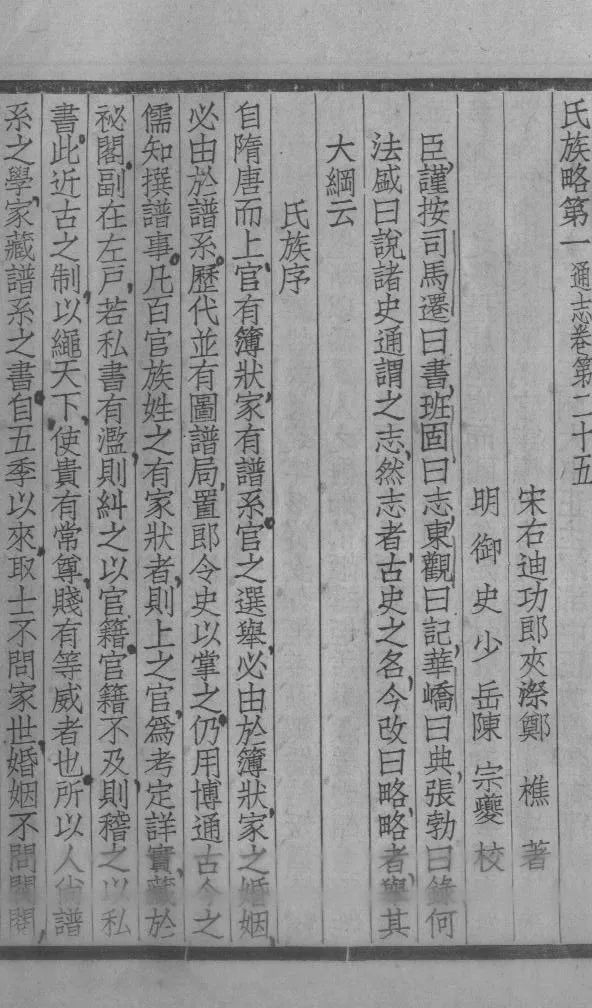 氏族略第一 通志卷第二十五
宋右迪功郎夾漈鄭樵著
明御史少岳陳宗夔校
臣謹按司馬遷曰書班固曰志東觀曰記華嶠曰典張勃曰錄何
法盛曰說諸史通謂之志然志者古史之名今改曰略略者舉其
大綱云
氏族序
自隋唐而上官有簿狀家有譜系官之選舉必由於簿狀家之婚姻
必由於譜系歷代並有圖譜局置郎令史以掌之仍用博通古今之
儒知撰譜事凡百官族姓之有家狀者則上之官為考定詳實藏於
祕閣副在左戶若私書有濫則糾之以官籍官籍不及則稽之以私
書此近古之制以繩天下使貴有常尊賤有等威者也所以人尚譜
系之學家藏譜系之書自五季以來取士不問家世婚姻不問閥閱